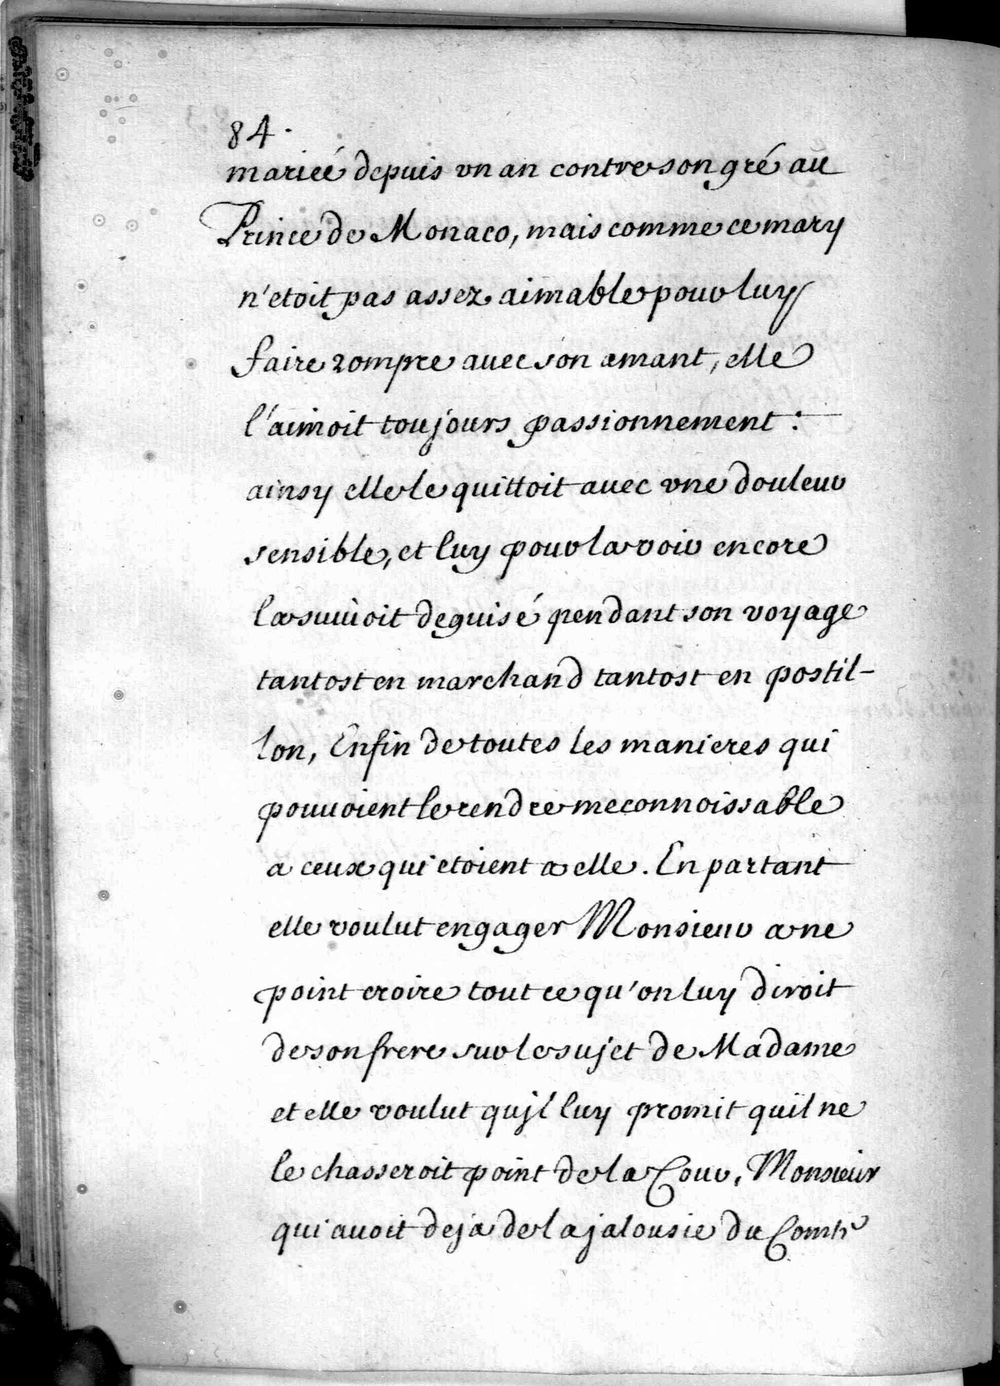 84.
mariée depuis vn an contre son gré au
Prince de Monaco, mais comme ce mary
n'etoit pas assez aimable pour luy
faire rompre auec son amant, elle
l'aimoit toujours passionnement :
ainsy elle le quittoit auec vne douleur
sensible, et luy pour la voir encore
la suiuoit deguisé pendant son voyage
tantost en marchand tantost en postil-
lon, Enfin de toutes les manieres qui
pouuoient le rendre meconnoissable
a ceux qui etoient a elle. En partant
elle voulut engager Monsieur a ne
point croire tout ce qu'on luy diroit
de son frere sur le sujet de Madame
et elle voulut qu'jl luy promit quil ne
le chasseroit point de la Cour, Monsieur
qui auoit deja de la jalousie du Comte